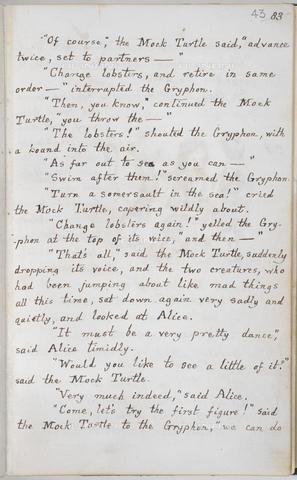 43 83
"Of course," the Mock Turtle said, "advance
twice, set to partners — "
"Change lobsters, and retire in same
order — " interrupted the Gryphon.
"Then, you know," continued the Mock
Turtle, "you throw the — "
"The lobsters!" shouted the Gryphon, with
a bound into the air.
"As far out to sea as you can — "
"Swim after them!" screamed the Gryphon.
"Turn a somersault in the sea!" cried
the Mock Turtle, capering wildly about.
"Change lobsters again!" yelled the Gry-
-phon at the top of its voice, "and then — "
"That's all," said the Mock Turtle, suddenly
dropping its voice, and the two creatures, who
had been jumping about like mad things
all this time, sat down again very sadly and
quietly, and looked at Alice.
"It must be a very pretty dance,"
said Alice timidly.
"Would you like to see a little of it?"
said the Mock Turtle.
"Very much indeed," said Alice.
"Come, let's try the first figure!" said
the Mock Turtle to the Gryphon, "we can do